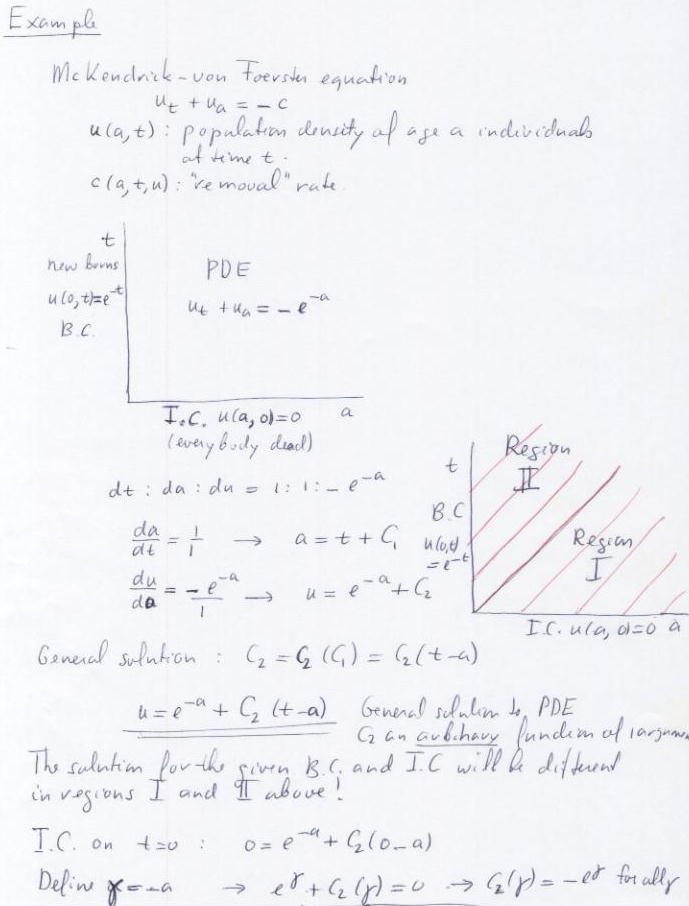 Example
McKendrick-von Foerster equation
u_t + u_a = - c
u(a,t) : population density of age a individuals
at time t.
c(a,t,u) : "removal" rate.
t
new borns
u(0,t)=e^-t
B.C.
PDE
u_t + u_a = - e^-a
I.C. u(a,0)=0 a
(everybody dead)
dt : da : du = 1 : 1 : - e^-a
da/dt = 1/1 → a = t + C_1
du/da = - e^-a/1 → u = e^-a + C_2
t
B.C
u(0,t)
= e^-t
Region
II
Region
I
I.C. u(a,0)=0 a
General solution : C_2 = C_2(C_1) = C_2(t-a)
u = e^-a + C_2 (t-a) General solution to PDE
C_2 an arbitrary function of 1 argumen
The solution for the given B.C. and I.C will be different
in regions I and II above!
I.C. on t=0 : 0 = e^-a + C_2(0-a)
Define γ = -a → e^γ + C_2(γ) = 0 → C_2(γ) = -e^γ for all γ